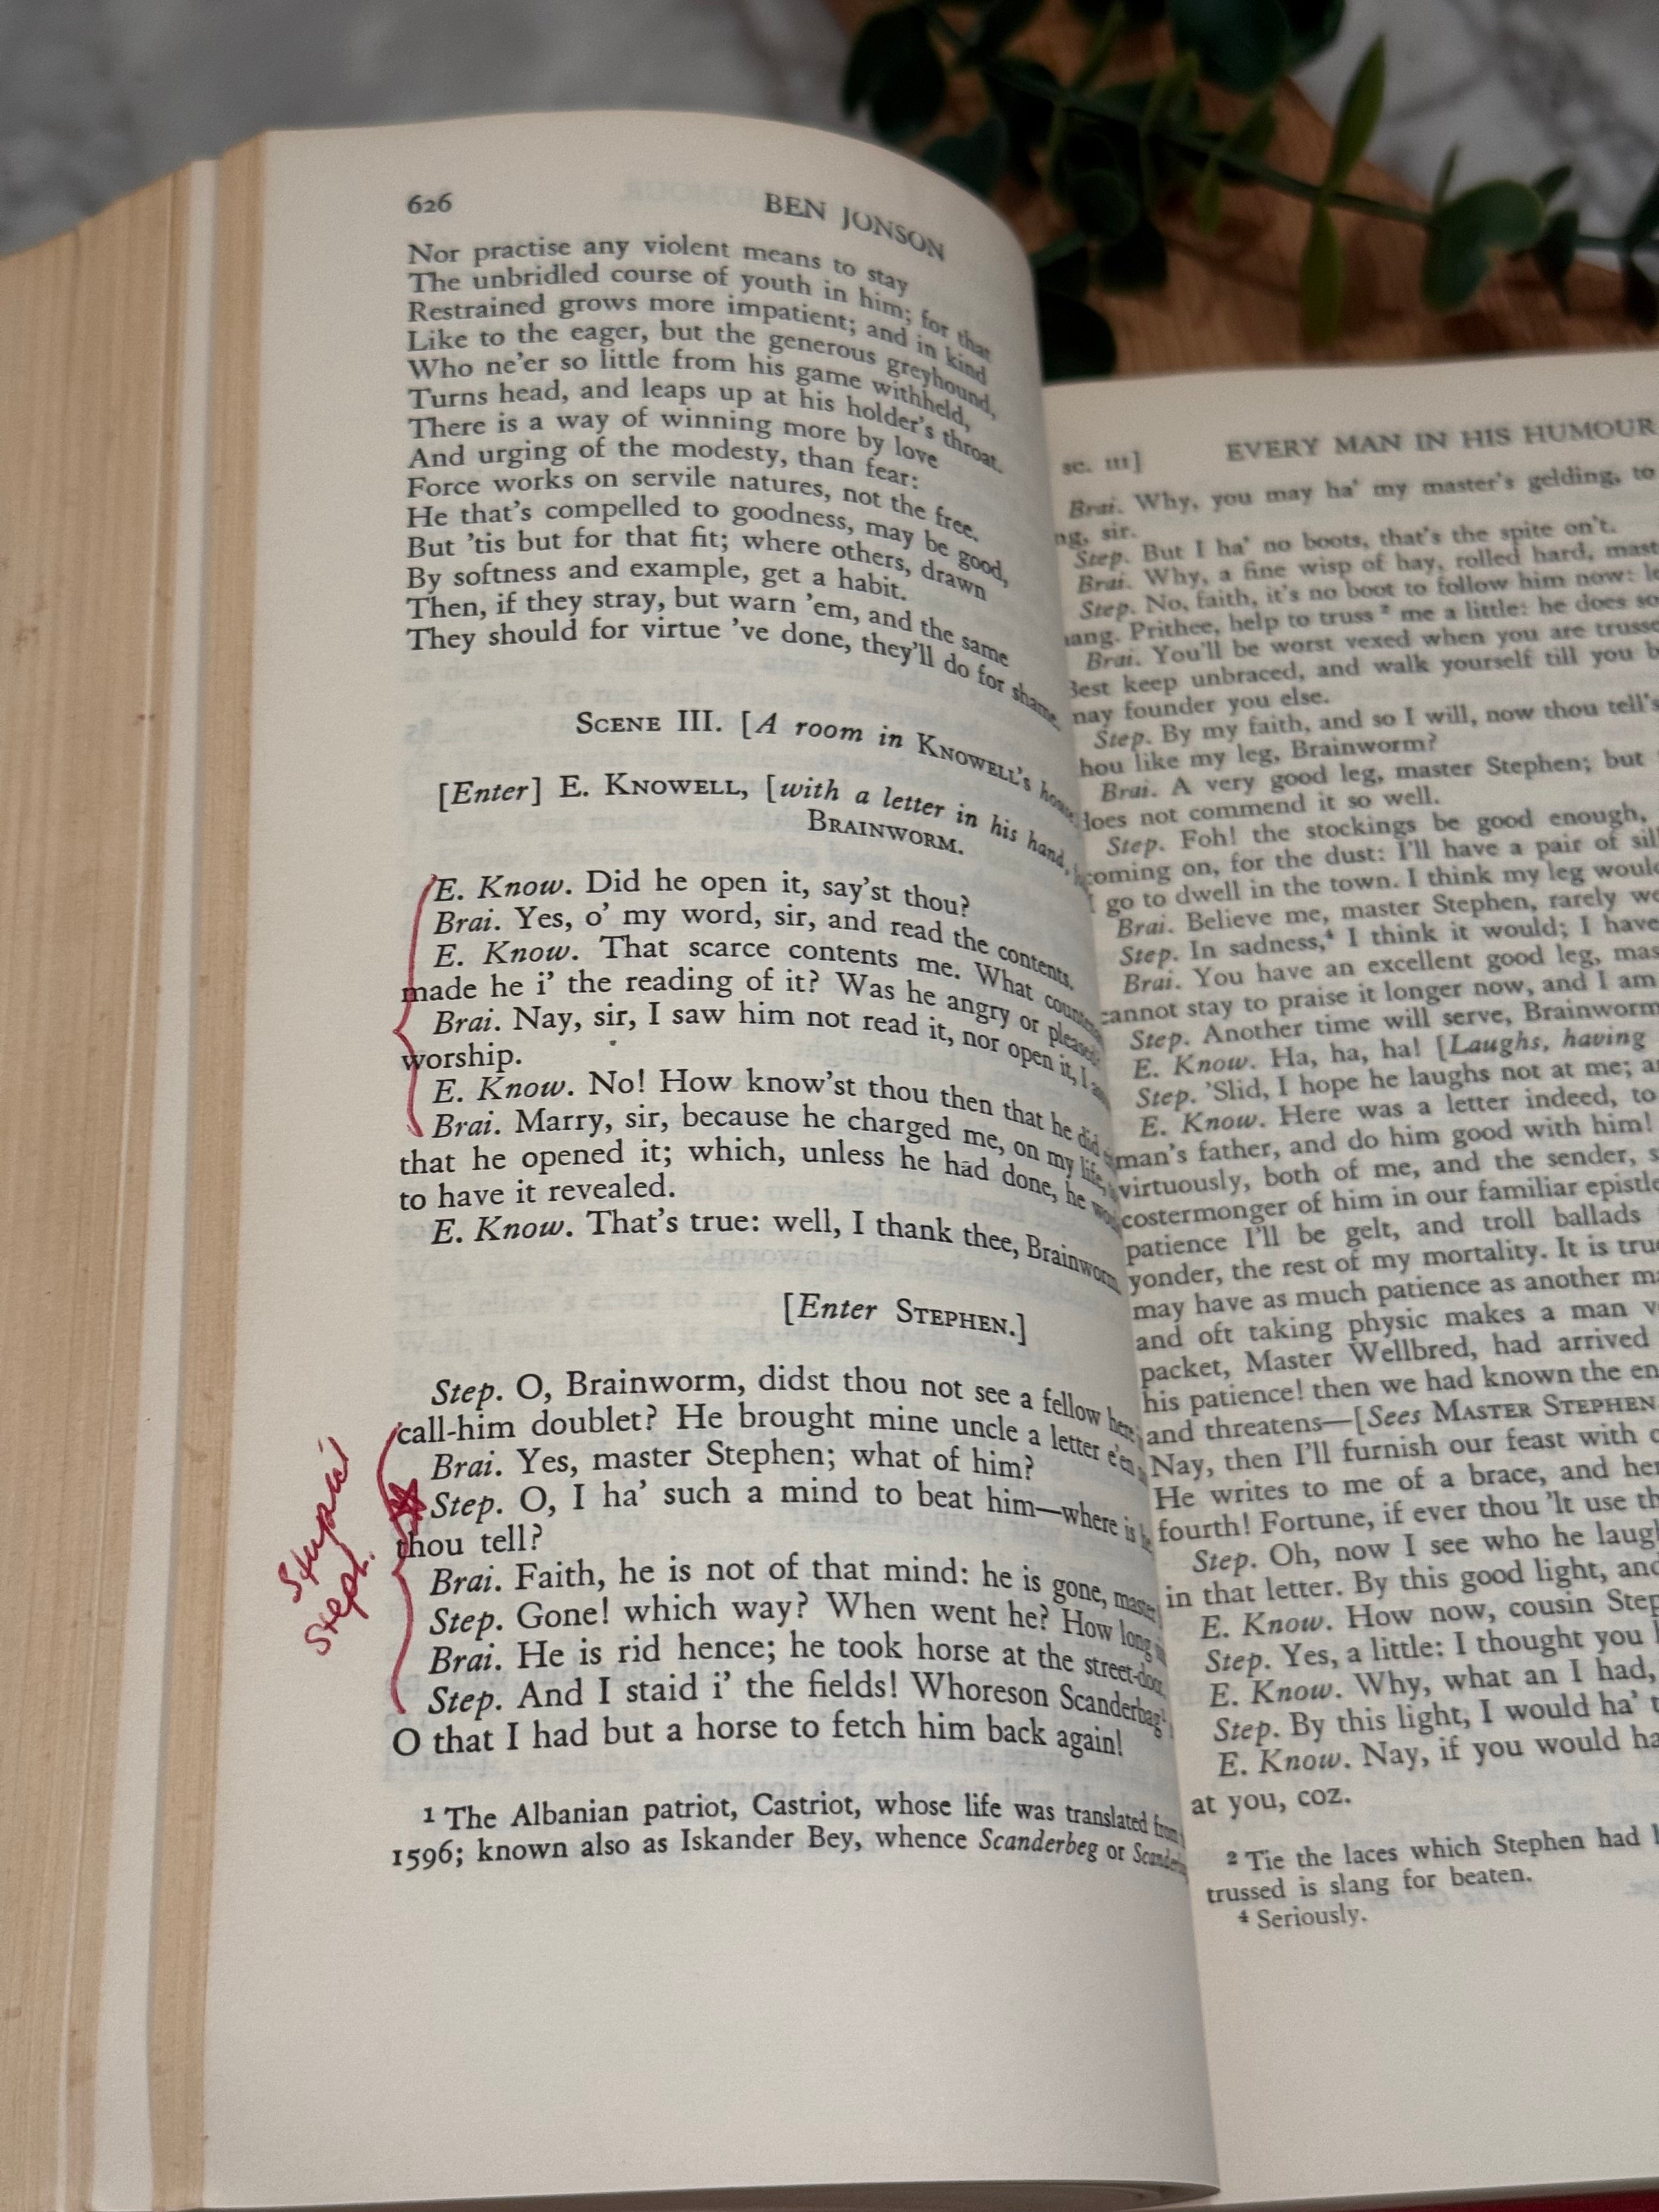 626
BEN JONSON
Nor practise any violent means to stay
The unbridled course of youth in him; for that
Restrained grows more impatient; and in kind
Like to the eager, but the generous greyhound,
Who ne'er so little from his game withheld,
Turns head, and leaps up at his holder's throat.
There is a way of winning more by love
And urging of the modesty, than fear:
Force works on servile natures, not the free.
He that's compelled to goodness, may be good,
But 'tis but for that fit; where others, drawn
By softness and example, get a habit.
Then, if they stray, but warn 'em, and the same
They should for virtue 've done, they'll do for shame.
SCENE III. [A room in KNOWELL'S house
[Enter] E. KNOWELL, [with a letter in his hand,
BRAINWORM.
E. Know. Did he open it, say'st thou?
Brai. Yes, o' my word, sir, and read the contents.
E. Know. That scarce contents me. What
made he i' the reading of it? Was he angry or pleased
Brai. Nay, sir, I saw him not read it, nor open it, I
worship.
E. Know. No! How know'st thou then that he did
Brai. Marry, sir, because he charged me, on my life,
that he opened it; which, unless he had done, he
to have it revealed.
E. Know. That's true: well, I thank thee, Brainworm
[Enter STEPHEN.]
Step. O, Brainworm, didst thou not see a fellow here
call-him doublet? He brought mine uncle a letter e'en
Brai. Yes, master Stephen; what of him?
Step. O, I ha' such a mind to beat him—where is
thou tell?
Brai. Faith, he is not of that mind: he is gone, master
Step. Gone! which way? When went he? How long
Brai. He is rid hence; he took horse at the street-door
Step. And I staid i' the fields! Whoreson Scanderbag¹
O that I had but a horse to fetch him back again!
1 The Albanian patriot, Castriot, whose life was translated from
1596; known also as Iskander Bey, whence Scanderbeg or
Stupid
Steph.
sc. III]
EVERY MAN IN HIS HUMOUR
Brai. Why, you may ha' my master's gelding, to
ng, sir.
Step. But I ha' no boots, that's the spite on't.
Brai. Why, a fine wisp of hay, rolled hard, mast
Step. No, faith, it's no boot to follow him now: le
hang. Prithee, help to truss² me a little: he does so
Brai. You'll be worst vexed when you are trusse
Best keep unbraced, and walk yourself till you b
may founder you else.
Step. By my faith, and so I will, now thou tell's
hou like my leg, Brainworm?
Brai. A very good leg, master Stephen; but
does not commend it so well.
Step. Foh! the stockings be good enough,
coming on, for the dust: I'll have a pair of sil
I go to dwell in the town. I think my leg would
Brai. Believe me, master Stephen, rarely we
Step. In sadness,⁴ I think it would; I have
Brai. You have an excellent good leg, mas
cannot stay to praise it longer now, and I am
Step. Another time will serve, Brainworm
E. Know. Ha, ha, ha! [Laughs, having
Step. 'Slid, I hope he laughs not at me; an
E. Know. Here was a letter indeed, to
man's father, and do him good with him!
virtuously, both of me, and the sender, s
costermonger of him in our familiar epistle
patience I'll be gelt, and troll ballads
yonder, the rest of my mortality. It is true
may have as much patience as another ma
and oft taking physic makes a man v
packet, Master Wellbred, had arrived
his patience! then we had known the en
and threatens—[Sees MASTER STEPHEN
Nay, then I'll furnish our feast with o
He writes to me of a brace, and her
fourth! Fortune, if ever thou 'lt use th
Step. Oh, now I see who he laugh
in that letter. By this good light, and
E. Know. How now, cousin Step
Step. Yes, a little: I thought you
E. Know. Why, what an I had,
Step. By this light, I would ha' t
E. Know. Nay, if you would ha
at you, coz.
2 Tie the laces which Stephen had l
trussed is slang for beaten.
4 Seriously.